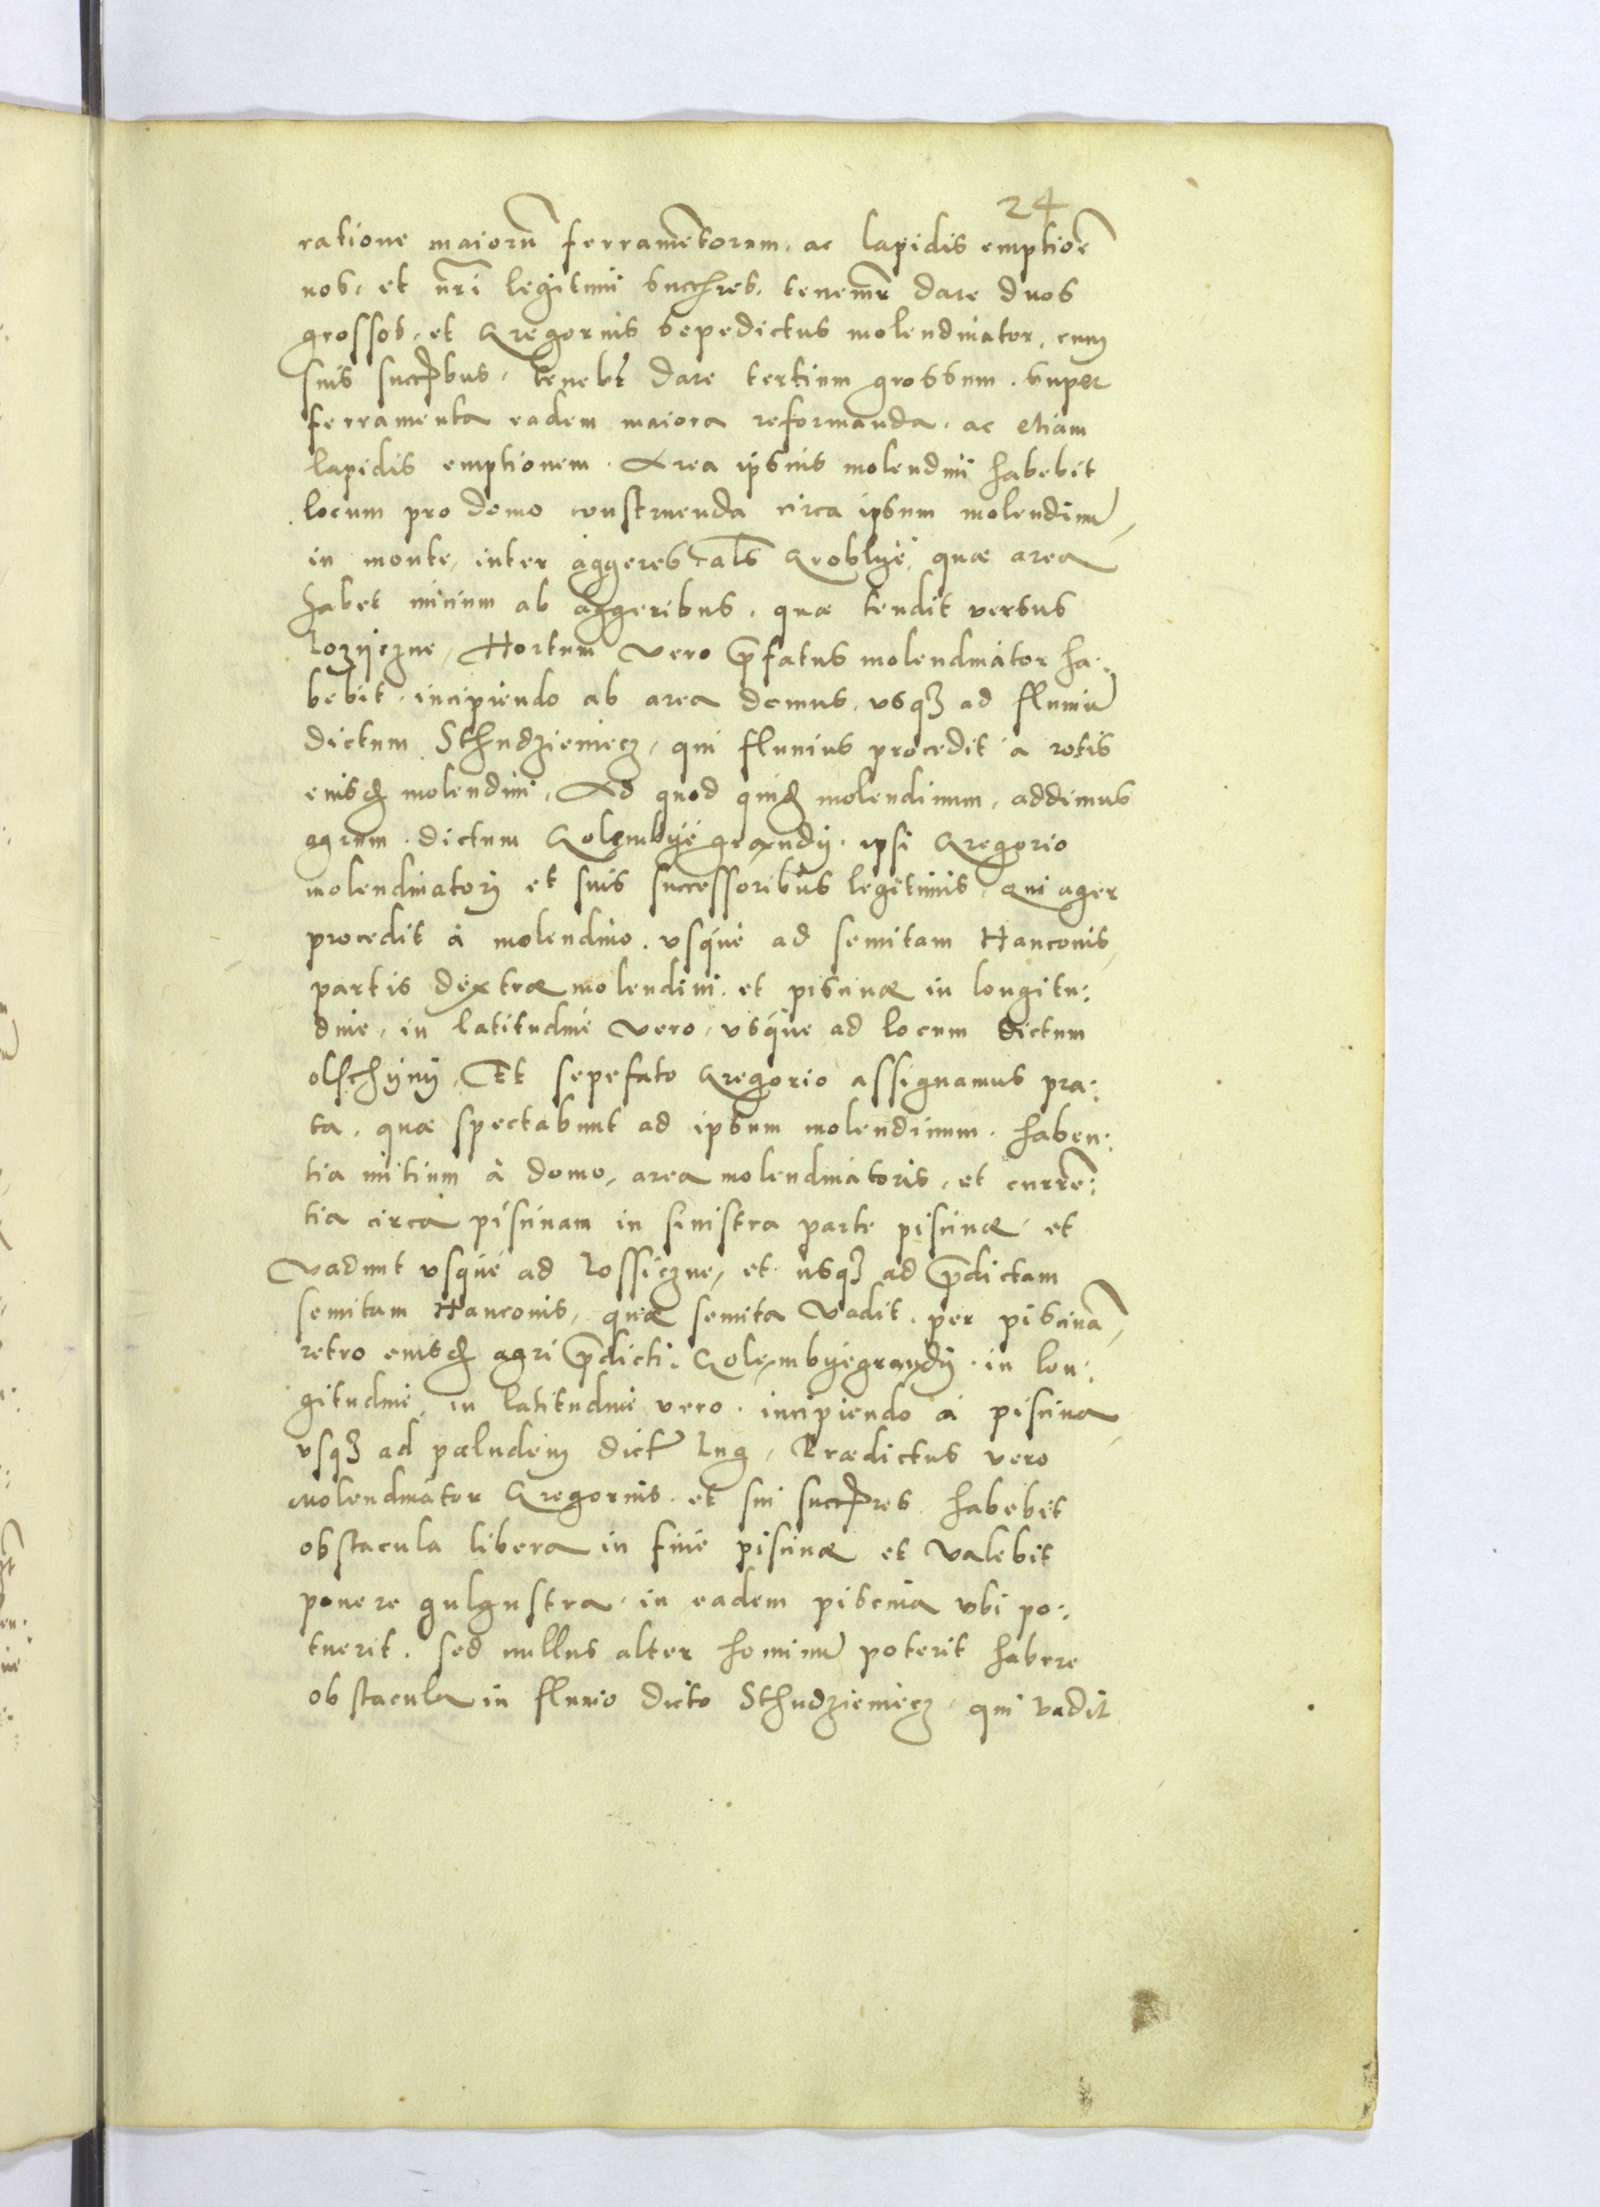 24
ratione maiorũ ferramẽtorum, ac lapidis emptiõe
nos, et nr̃i legitimi succ̃res, tenemr̃ dare duos
grossos, et Gregorius sepedictus molendinator, cum
suis succ̃bus, tenebr̃ dare tertium grossum, super
ferramenta eadem maiora reformanda, ac etiam
lapidis emptionem. Area ipsius molendini habebit
locum pro domo construenda circa ipsum molendinũ,
in monte, inter aggeres als̃ Groblye, quæ area
habet inicium ab aggeribus, quæ tendit versus
Rozyczne, Hortum vero p̃fatus molendinator ha:
bebit, incipiendo ab area domus, usq3 ad fluuiũ
dictum Sthudzieniecz, qui fluuius procedit a rotis
eiusd molendini, Ad quod quid molendinum, addimus
agrum dictum Golembyé grandy, ipsi Gregorio
molendinatori et suis successoribus legitimis, Qui ager
procedit à molendino, usque ad semitam Hanconis,
partis dextræ molendini, et piscinæ in longitu:
dine, in latitudine vero, usque ad locum dictum
olschyny, Et sepefato Gregorio assignamus pra:
ta, quæ spectabunt ad ipsum molendinum, haben:
tia initium à domo, area molendinatoris, et currẽ:
tia circa piscinam in sinistra parte piscinæ, et
vadunt usque ad Rossiczne, et usq3 ad p̃dictam
semitam Hanconis, quæ semita vadit per piscinã,
retro eiusd agri p̃dicti Golembyegrandy, in lon:
gitudine, in latitudine vero, incipiendo à piscina
usq3 ad paludem dictũ Lug, Prædictus vero
Molendinator Gregorius, et sui succ̃res habebit
obstacula libera in fine piscinæ et valebit
ponere gulgustra, in eadem piscina ubi po:
tuerit, sed nullus alter hominũ poterit habere
obstacula in fluuio dicto Sthudzieniecz, qui vadit